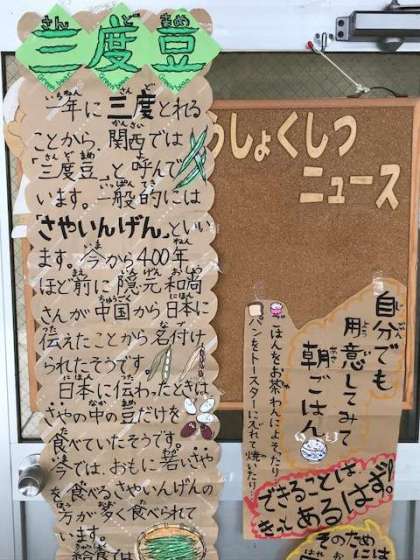 三度豆
Green beans
一年に三度とれる
ことから、関西では
「三度豆」と呼んで
います。一般的には
「さやいんげん」といい
ます。今から400年
ほど前に隠元和尚
さんが中国から日本に
伝えたことから名付け
られたそうです。
日本に伝わったときは
さやの中の豆だけを
食べていたそうです。
今では、おもに若いさや
を食べるさやいんげんの
方が多く食べられて
います。
給食では
うしょくしつ
ニュース
自分でも
用意してみて
朝ごはん
ごはんをお茶わんによそったり
パンをトースターに入れて焼いたり…
できることは
きっとあるはず。
そのため
には